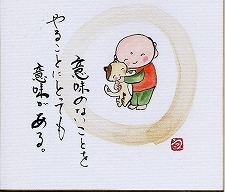 意味のないことを
やることにとっても
意味が
ある。